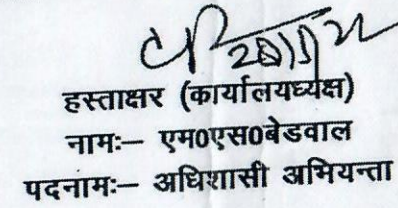 हस्ताक्षर (कार्यालयध्यक्ष)
नामः– एम0एस0बेडवाल
पदनामः– अधिशासी अभियन्ता